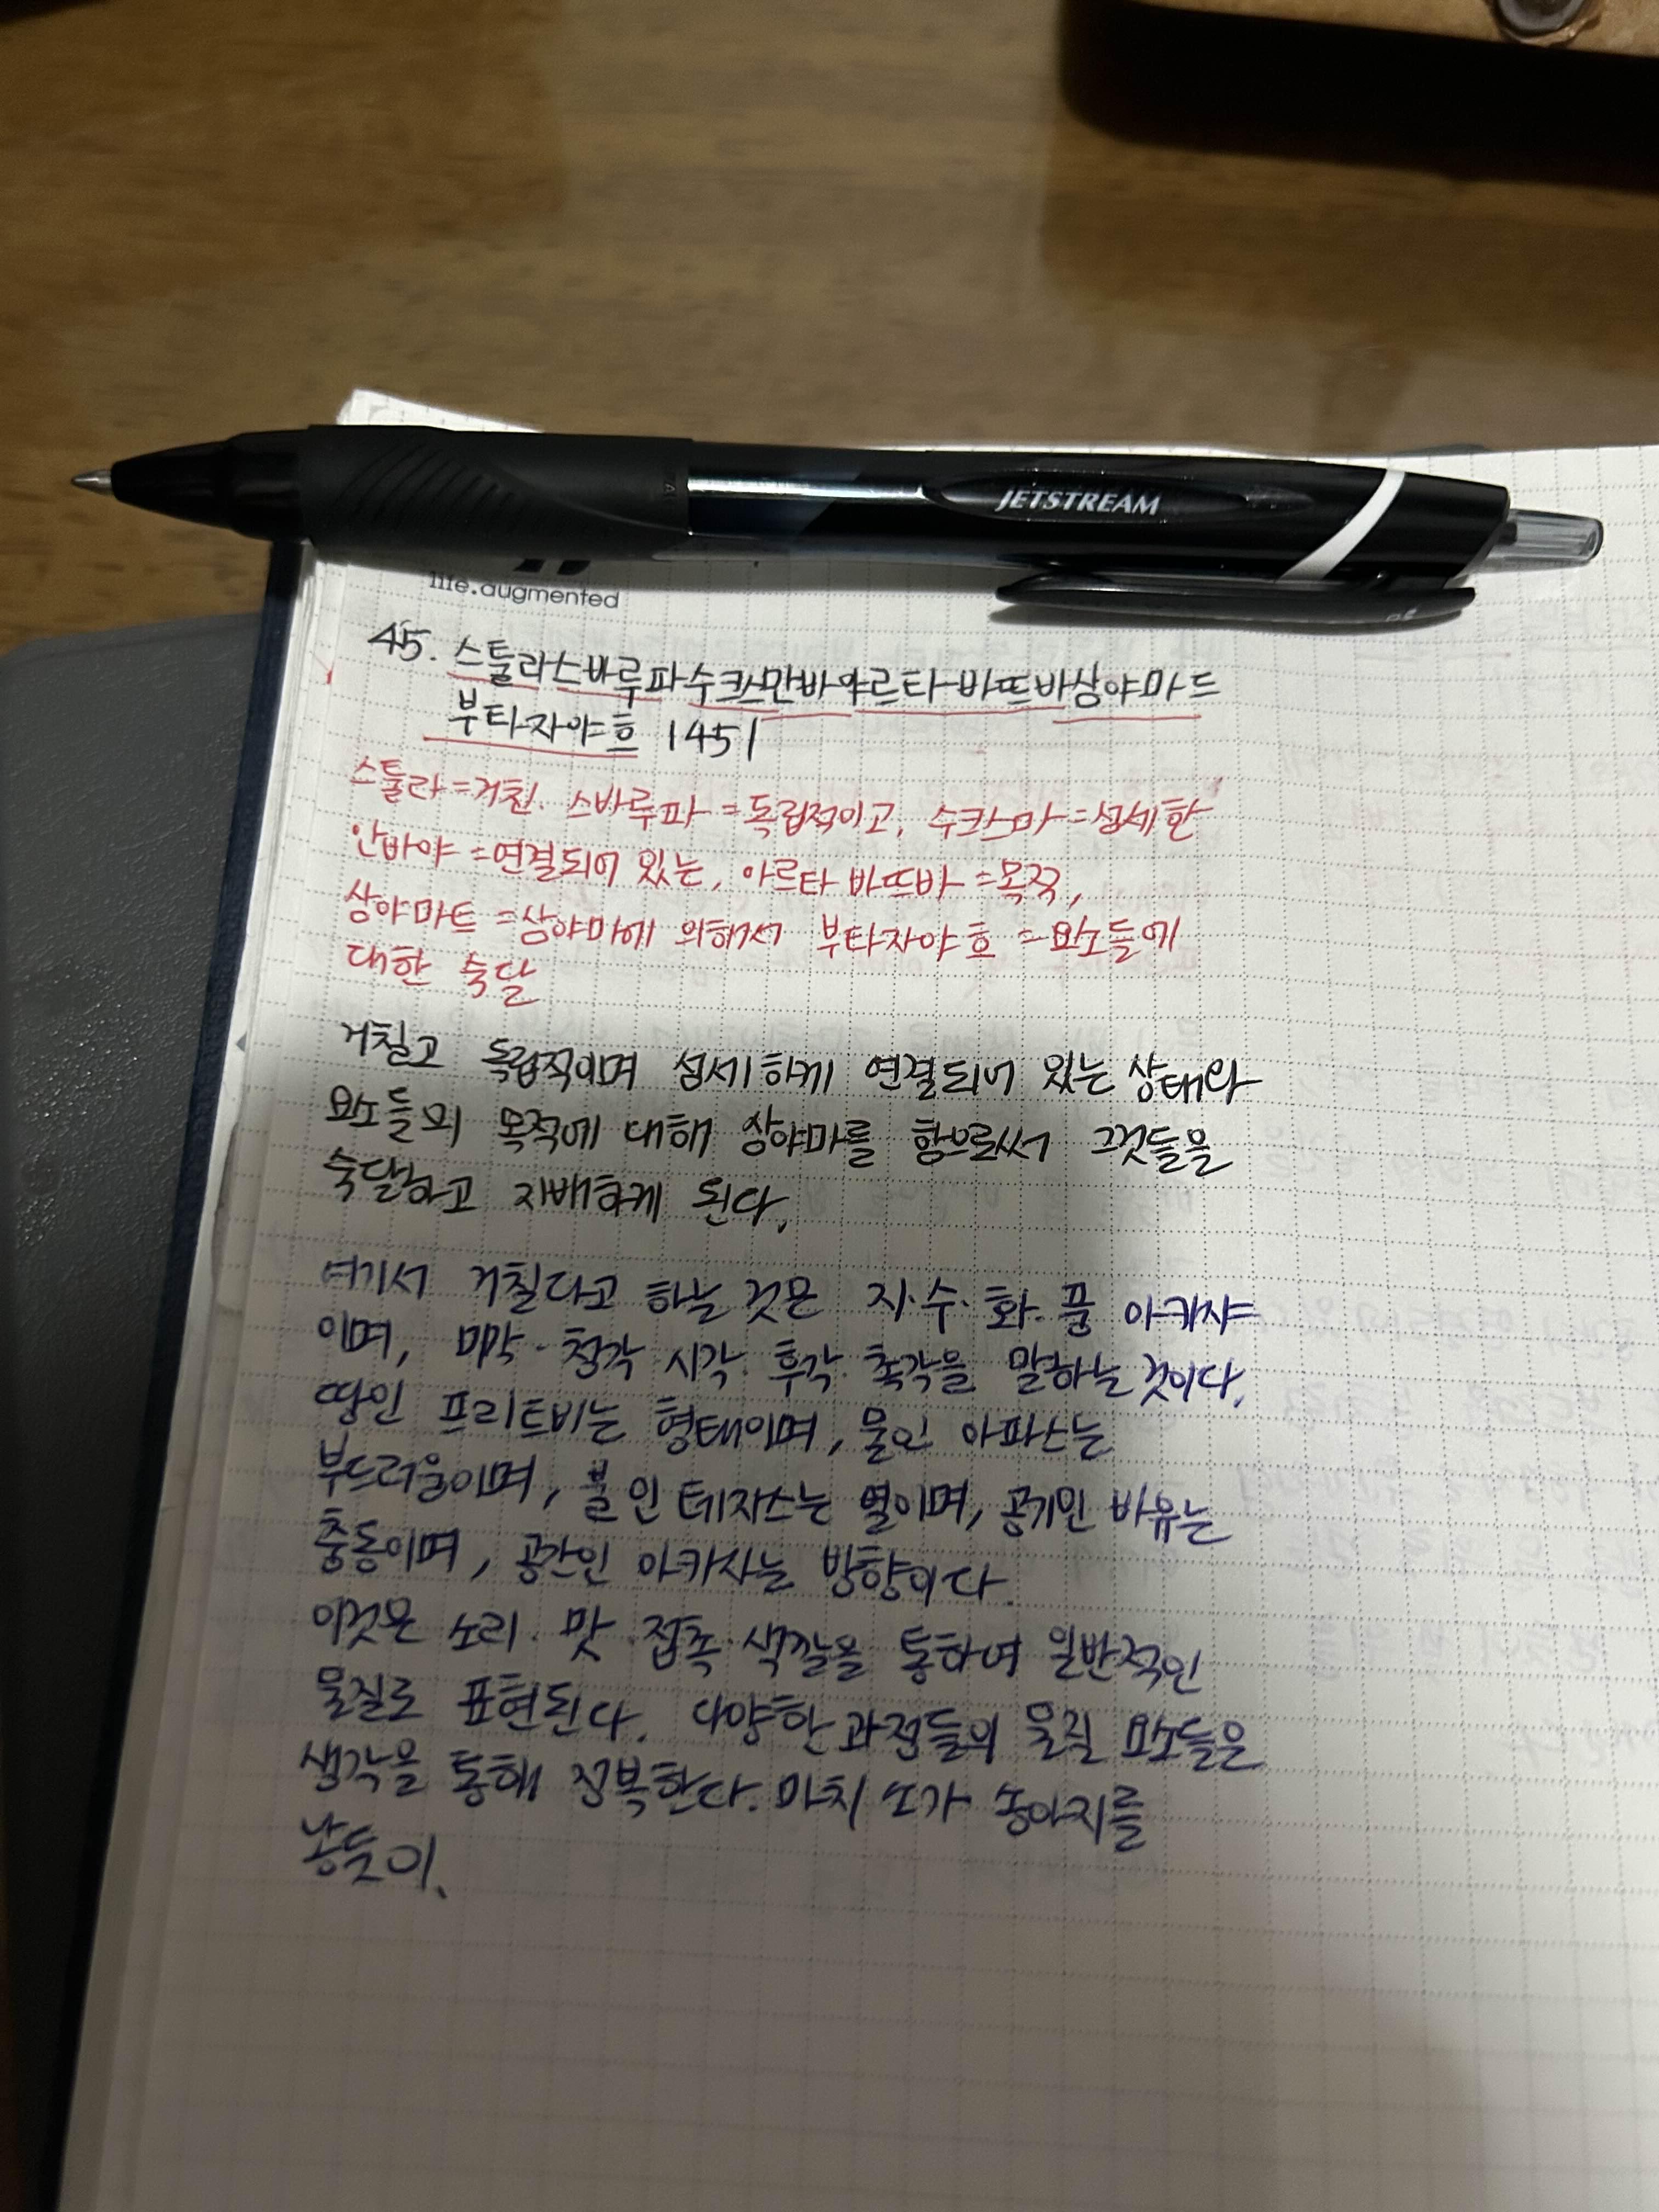 JETSTREAM
life.augmented
45. 스툴라스바루파수크스만바야르타바뜨바상야마드
부타자야흐 |45|
스툴라=거친. 스바루파=독립적이고, 수크스마=섬세한
안바야=연결되어 있는, 아르타 바뜨바=목적,
상야마트=상야마에 의해서 부타자야흐=요소들에
대한 숙달
거칠고 독립적이며 섬세하게 연결되어 있는 상태와
요소들의 목적에 대해 상야마를 함으로써 그것들을
숙달하고 지배하게 된다.
여기서 거칠다고 하는 것은 지·수·화·풍 아카샤
이며, 미각·청각·시각·후각·촉각을 말하는 것이다.
땅인 프리트비는 형태이며, 물인 아파스는
부드러움이며, 불인 테자스는 열이며, 공기인 바유는
충동이며, 공간인 아카샤는 방향이다.
이것은 소리·맛·접촉·색깔을 통하여 일반적인
물질로 표현된다. 다양한 과정들의 물질 요소들은
생각을 통해 정복한다. 마치 소가 송아지를
낳듯이.